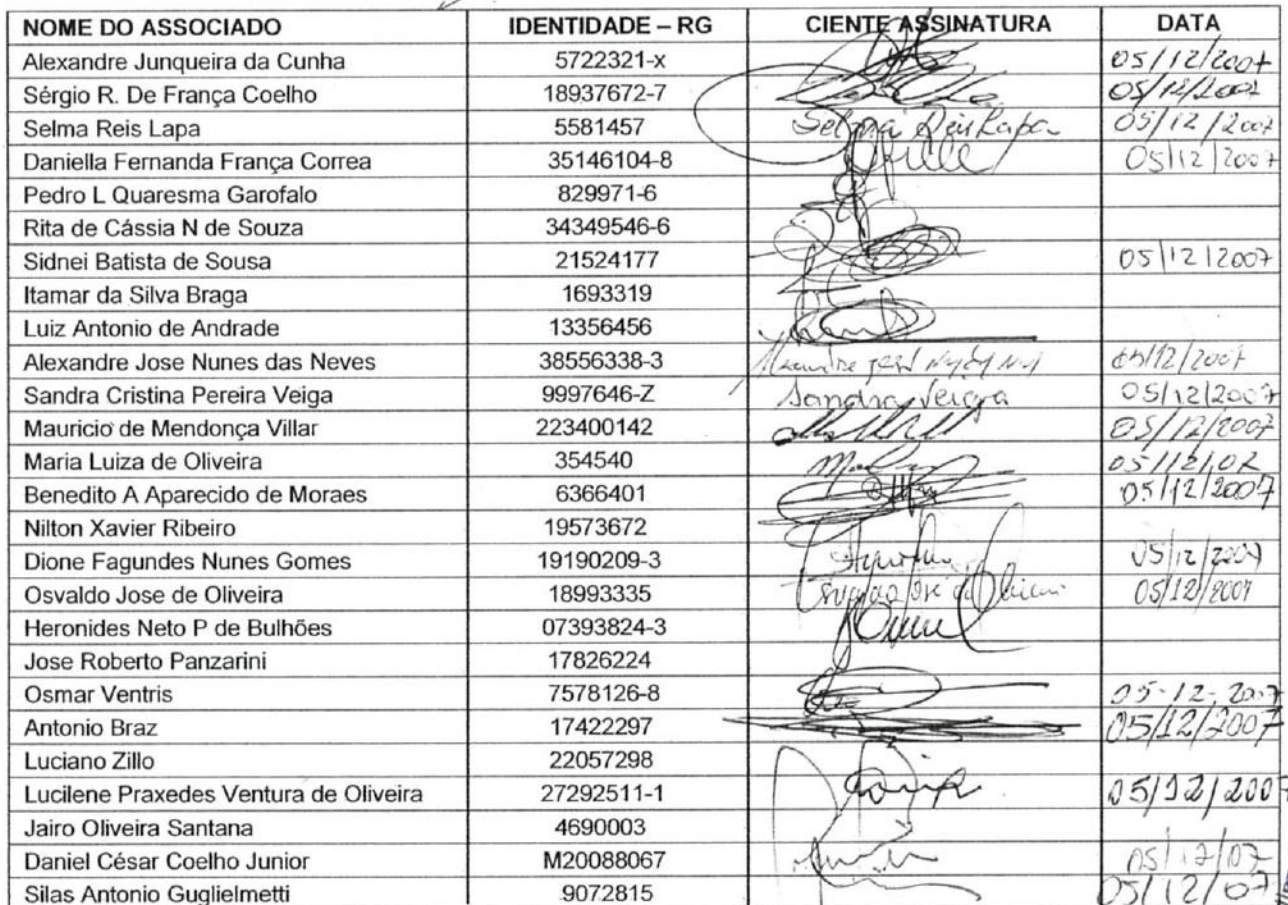 NOME DO ASSOCIADO IDENTIDADE – RG CIENTE ASSINATURA DATA
Alexandre Junqueira da Cunha 5722321-x 05/12/2007
Sérgio R. De França Coelho 18937672-7 05/12/2007
Selma Reis Lapa 5581457 Selma Reis Lapa 05/12/2007
Daniella Fernanda França Correa 35146104-8 05/12/2007
Pedro L Quaresma Garofalo 829971-6
Rita de Cássia N de Souza 34349546-6
Sidnei Batista de Sousa 21524177 05/12/2007
Itamar da Silva Braga 1693319
Luiz Antonio de Andrade 13356456
Alexandre Jose Nunes das Neves 38556338-3 05/12/2007
Sandra Cristina Pereira Veiga 9997646-Z Sandra Veiga 05/12/2007
Mauricio de Mendonça Villar 223400142 05/12/2007
Maria Luiza de Oliveira 354540 05/12/07
Benedito A Aparecido de Moraes 6366401 05/12/2007
Nilton Xavier Ribeiro 19573672
Dione Fagundes Nunes Gomes 19190209-3 05/12/2007
Osvaldo Jose de Oliveira 18993335 Osvaldo José de Oliveira 05/12/2007
Heronides Neto P de Bulhões 07393824-3
Jose Roberto Panzarini 17826224
Osmar Ventris 7578126-8 05-12-2007
Antonio Braz 17422297 05/12/2007
Luciano Zillo 22057298
Lucilene Praxedes Ventura de Oliveira 27292511-1 05/12/2007
Jairo Oliveira Santana 4690003
Daniel César Coelho Junior M20088067 05/12/07
Silas Antonio Guglielmetti 9072815 05/12/07